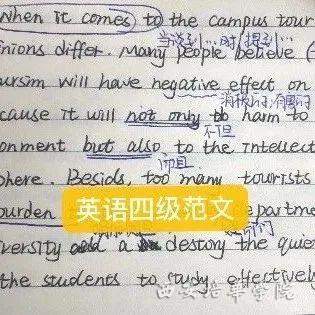 When it comes to the campus tour
当谈到…时 提到…
inions differ. Many people believe
oursim will have negative effect on
消极的,有害的
cause it will not only to harm to
不但
onment but also to the intellect
而且
phere. Besids, too many tourists
ourden
英语四级范文
epartme
versity and a destroy the quie
the students to study effectively
西安培华学院